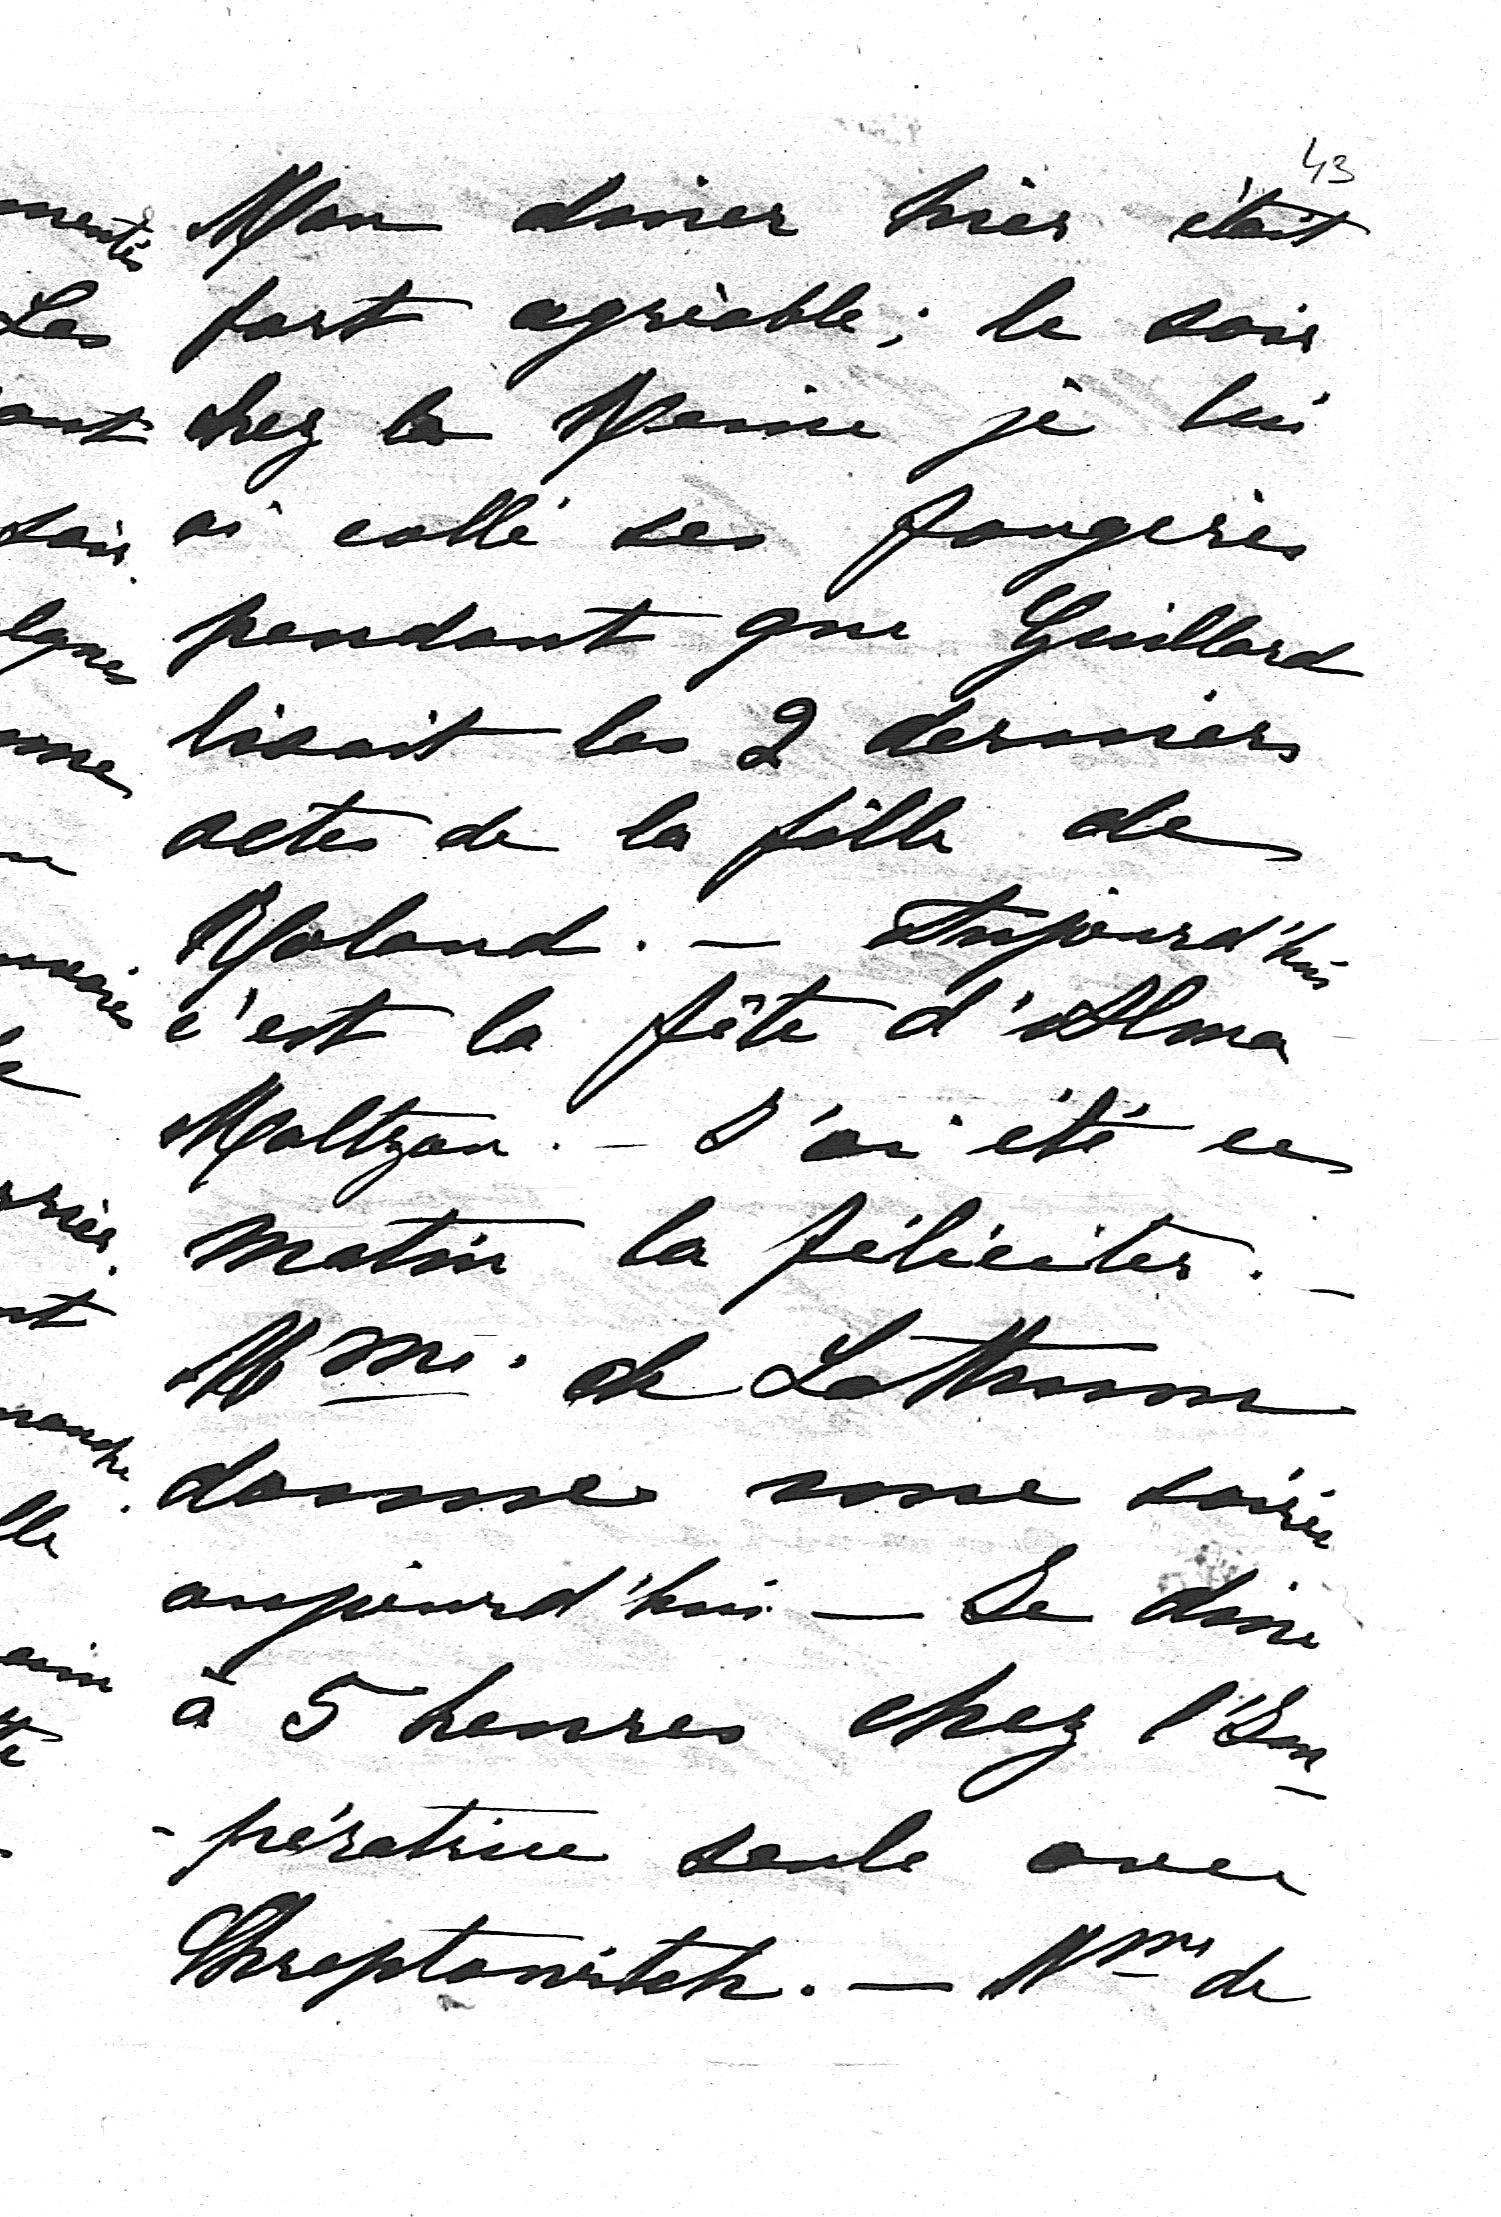 43
Mon diner hier était
fort agréable; le soir
chez la Reine je lui
ai collé ses fougères
pendant que Guillard
lisait les 2 derniers
actes de la fille de
Roland. — Aujourd'hui
c'est la fête d'Alma
Maltzan. — J'ai été ce
matin la féliciter. —
Mme. de
donne une soirée
aujourd'hui — Je dine
à 5 heures chez l'Im-
-pératrice seule avec
Chreptowitch. — Mme de